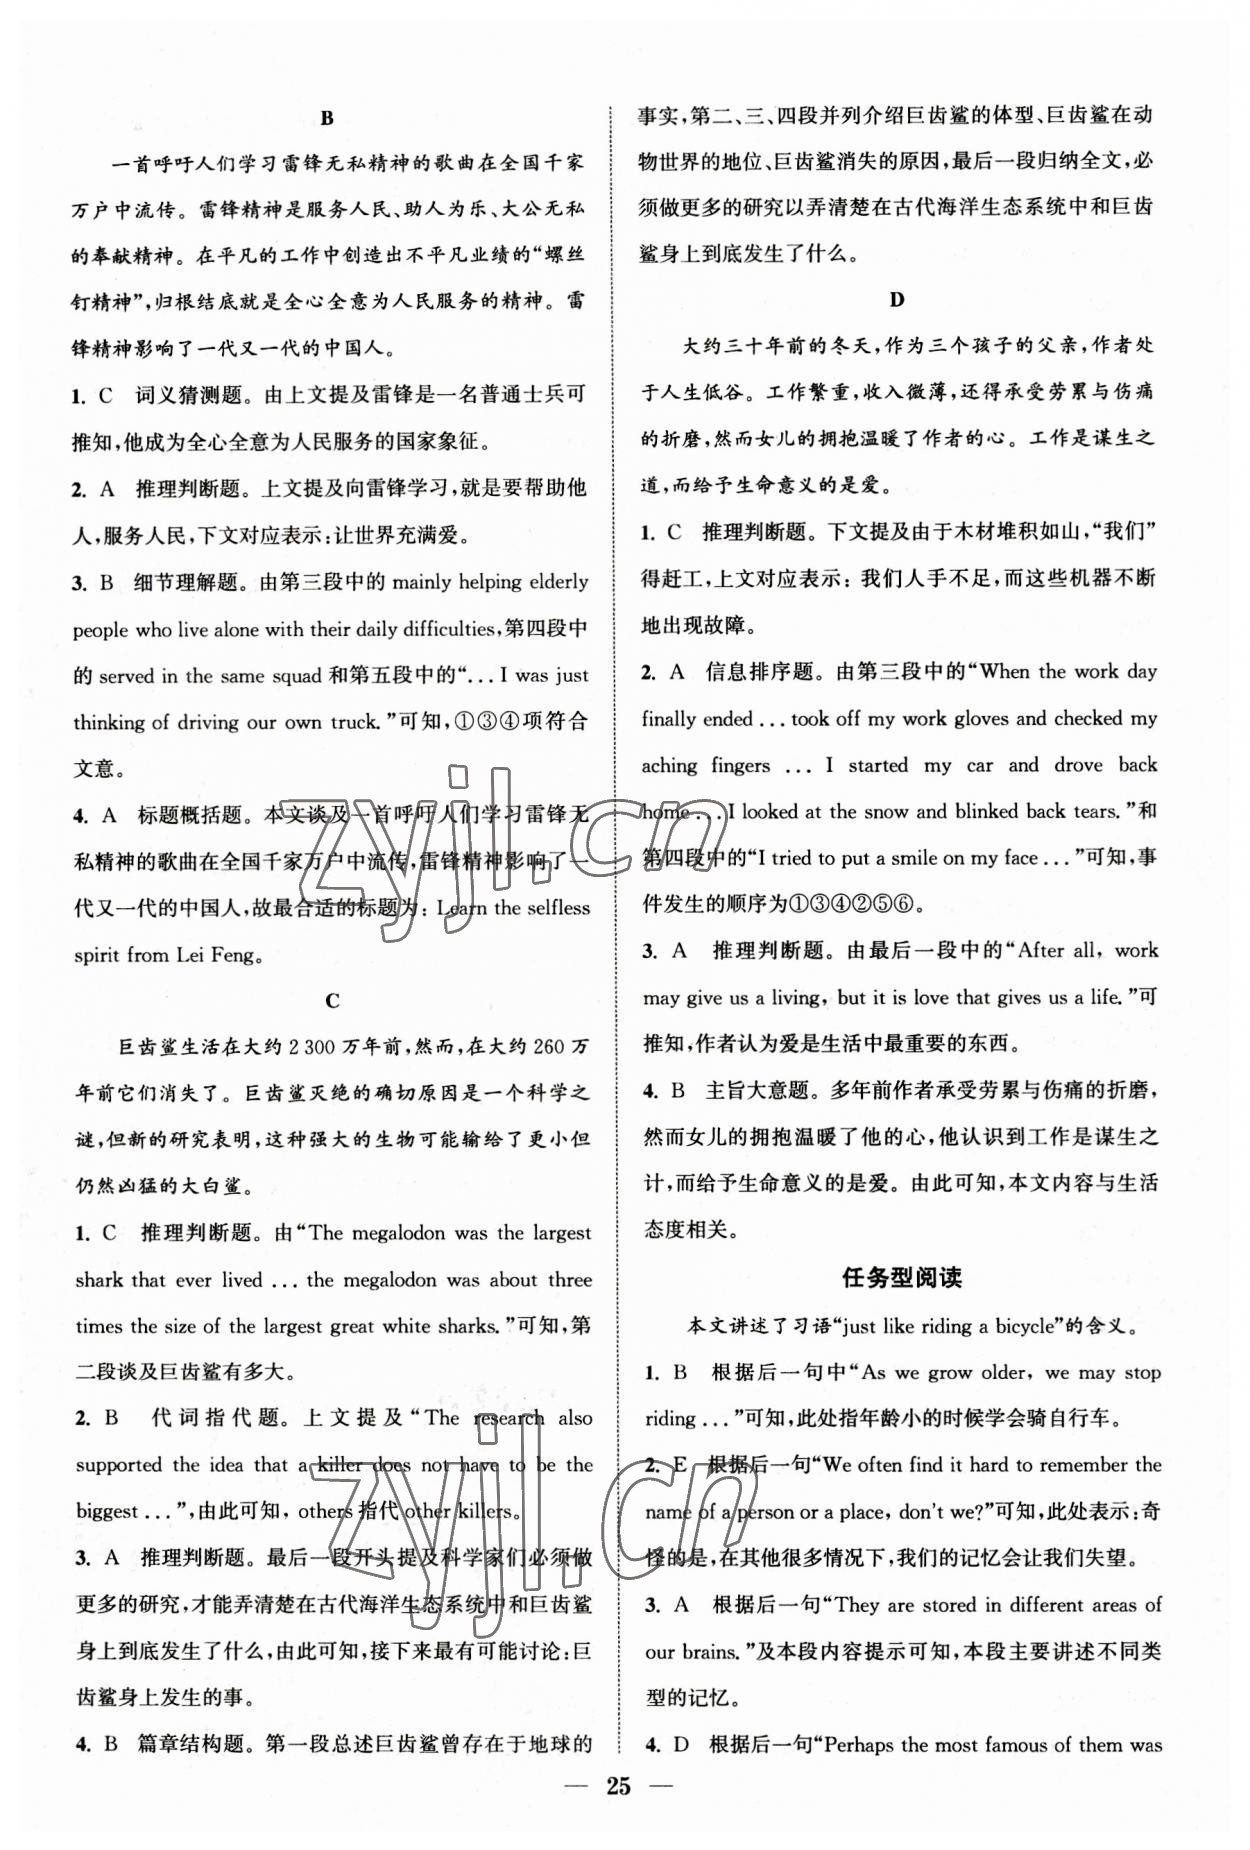 B
一首呼吁人们学习雷锋无私精神的歌曲在全国千家
万户中流传。雷锋精神是服务人民、助人为乐、大公无私
的奉献精神。在平凡的工作中创造出不平凡业绩的“螺丝
钉精神”,归根结底就是全心全意为人民服务的精神。雷
锋精神影响了一代又一代的中国人。
1. C 词义猜测题。由上文提及雷锋是一名普通士兵可
推知,他成为全心全意为人民服务的国家象征。
2. A 推理判断题。上文提及向雷锋学习,就是要帮助他
人,服务人民,下文对应表示:让世界充满爱。
3. B 细节理解题。由第三段中的 mainly helping elderly
people who live alone with their daily difficulties,第四段中
的 served in the same squad 和第五段中的“... I was just
thinking of driving our own truck.”可知,①③④项符合
文意。
4. A 标题概括题。本文谈及一首呼吁人们学习雷锋无
私精神的歌曲在全国千家万户中流传,雷锋精神影响了一
代又一代的中国人,故最合适的标题为: Learn the selfless
spirit from Lei Feng。
C
巨齿鲨生活在大约 2 300 万年前,然而,在大约 260 万
年前它们消失了。巨齿鲨灭绝的确切原因是一个科学之
谜,但新的研究表明,这种强大的生物可能输给了更小但
仍然凶猛的大白鲨。
1. C 推理判断题。由“The megalodon was the largest
shark that ever lived ... the megalodon was about three
times the size of the largest great white sharks.”可知,第
二段谈及巨齿鲨有多大。
2. B 代词指代题。上文提及“The research also
supported the idea that a killer does not have to be the
biggest ...”,由此可知, others 指代 other killers。
3. A 推理判断题。最后一段开头提及科学家们必须做
更多的研究,才能弄清楚在古代海洋生态系统中和巨齿鲨
身上到底发生了什么,由此可知,接下来最有可能讨论:巨
齿鲨身上发生的事。
4. B 篇章结构题。第一段总述巨齿鲨曾存在于地球的
事实,第二、三、四段并列介绍巨齿鲨的体型、巨齿鲨在动
物世界的地位、巨齿鲨消失的原因,最后一段归纳全文,必
须做更多的研究以弄清楚在古代海洋生态系统中和巨齿
鲨身上到底发生了什么。
D
大约三十年前的冬天,作为三个孩子的父亲,作者处
于人生低谷。工作繁重,收入微薄,还得承受劳累与伤痛
的折磨,然而女儿的拥抱温暖了作者的心。工作是谋生之
道,而给予生命意义的是爱。
1. C 推理判断题。下文提及由于木材堆积如山,“我们”
得赶工,上文对应表示: 我们人手不足,而这些机器不断
地出现故障。
2. A 信息排序题。由第三段中的“When the work day
finally ended ... took off my work gloves and checked my
aching fingers ... I started my car and drove back
home ... I looked at the snow and blinked back tears.”和
第四段中的“I tried to put a smile on my face ...”可知,事
件发生的顺序为①③④②⑤⑥。
3. A 推理判断题。由最后一段中的“After all, work
may give us a living, but it is love that gives us a life.”可
推知,作者认为爱是生活中最重要的东西。
4. B 主旨大意题。多年前作者承受劳累与伤痛的折磨,
然而女儿的拥抱温暖了他的心,他认识到工作是谋生之
计,而给予生命意义的是爱。由此可知,本文内容与生活
态度相关。
任务型阅读
本文讲述了习语“just like riding a bicycle”的含义。
1. B 根据后一句中“As we grow older, we may stop
riding ...”可知,此处指年龄小的时候学会骑自行车。
2. E 根据后一句“We often find it hard to remember the
name of a person or a place, don't we?”可知,此处表示:奇
怪的是,在其他很多情况下,我们的记忆会让我们失望。
3. A 根据后一句“They are stored in different areas of
our brains.”及本段内容提示可知,本段主要讲述不同类
型的记忆。
4. D 根据后一句“Perhaps the most famous of them was
— 25 —
zyjl.cn
zyjl.cn